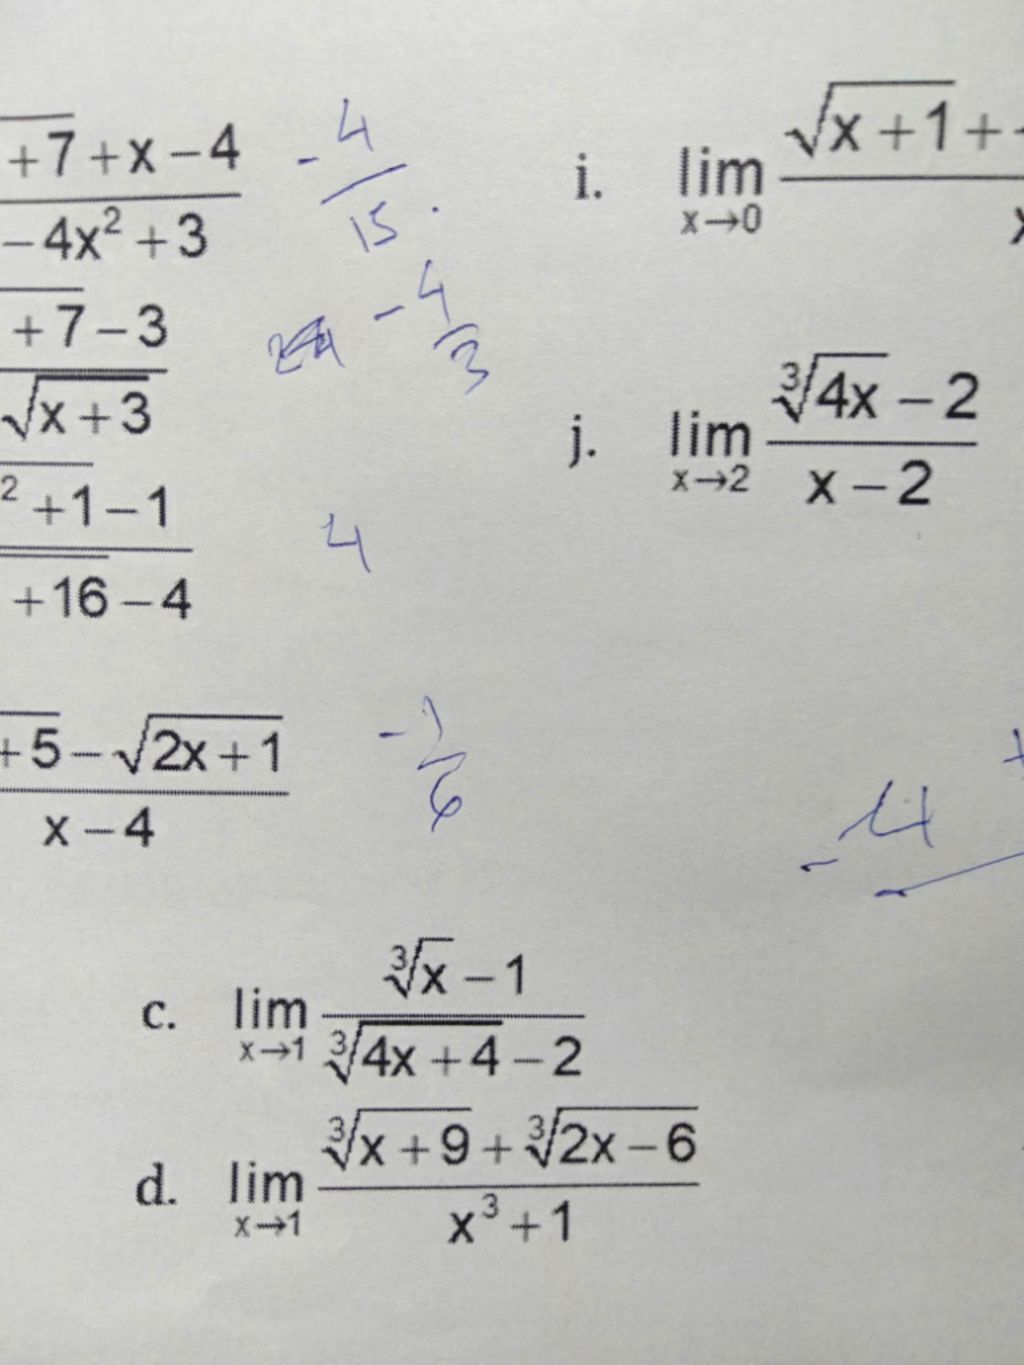 +7 + x − 4
− 4x² + 3
-4/15.
+ 7 − 3
√x + 3
-4/3
² + 1 − 1
+ 16 − 4
4
+ 5 − √2x + 1
x − 4
-1/6
i. lim x→0 √x + 1 +
j. lim x→2 (∛4x − 2)/(x − 2)
-4
c. lim x→1 (∛x − 1)/(∛4x + 4 − 2)
d. lim x→1 (∛x + 9 + ∛2x − 6)/(x³ + 1)